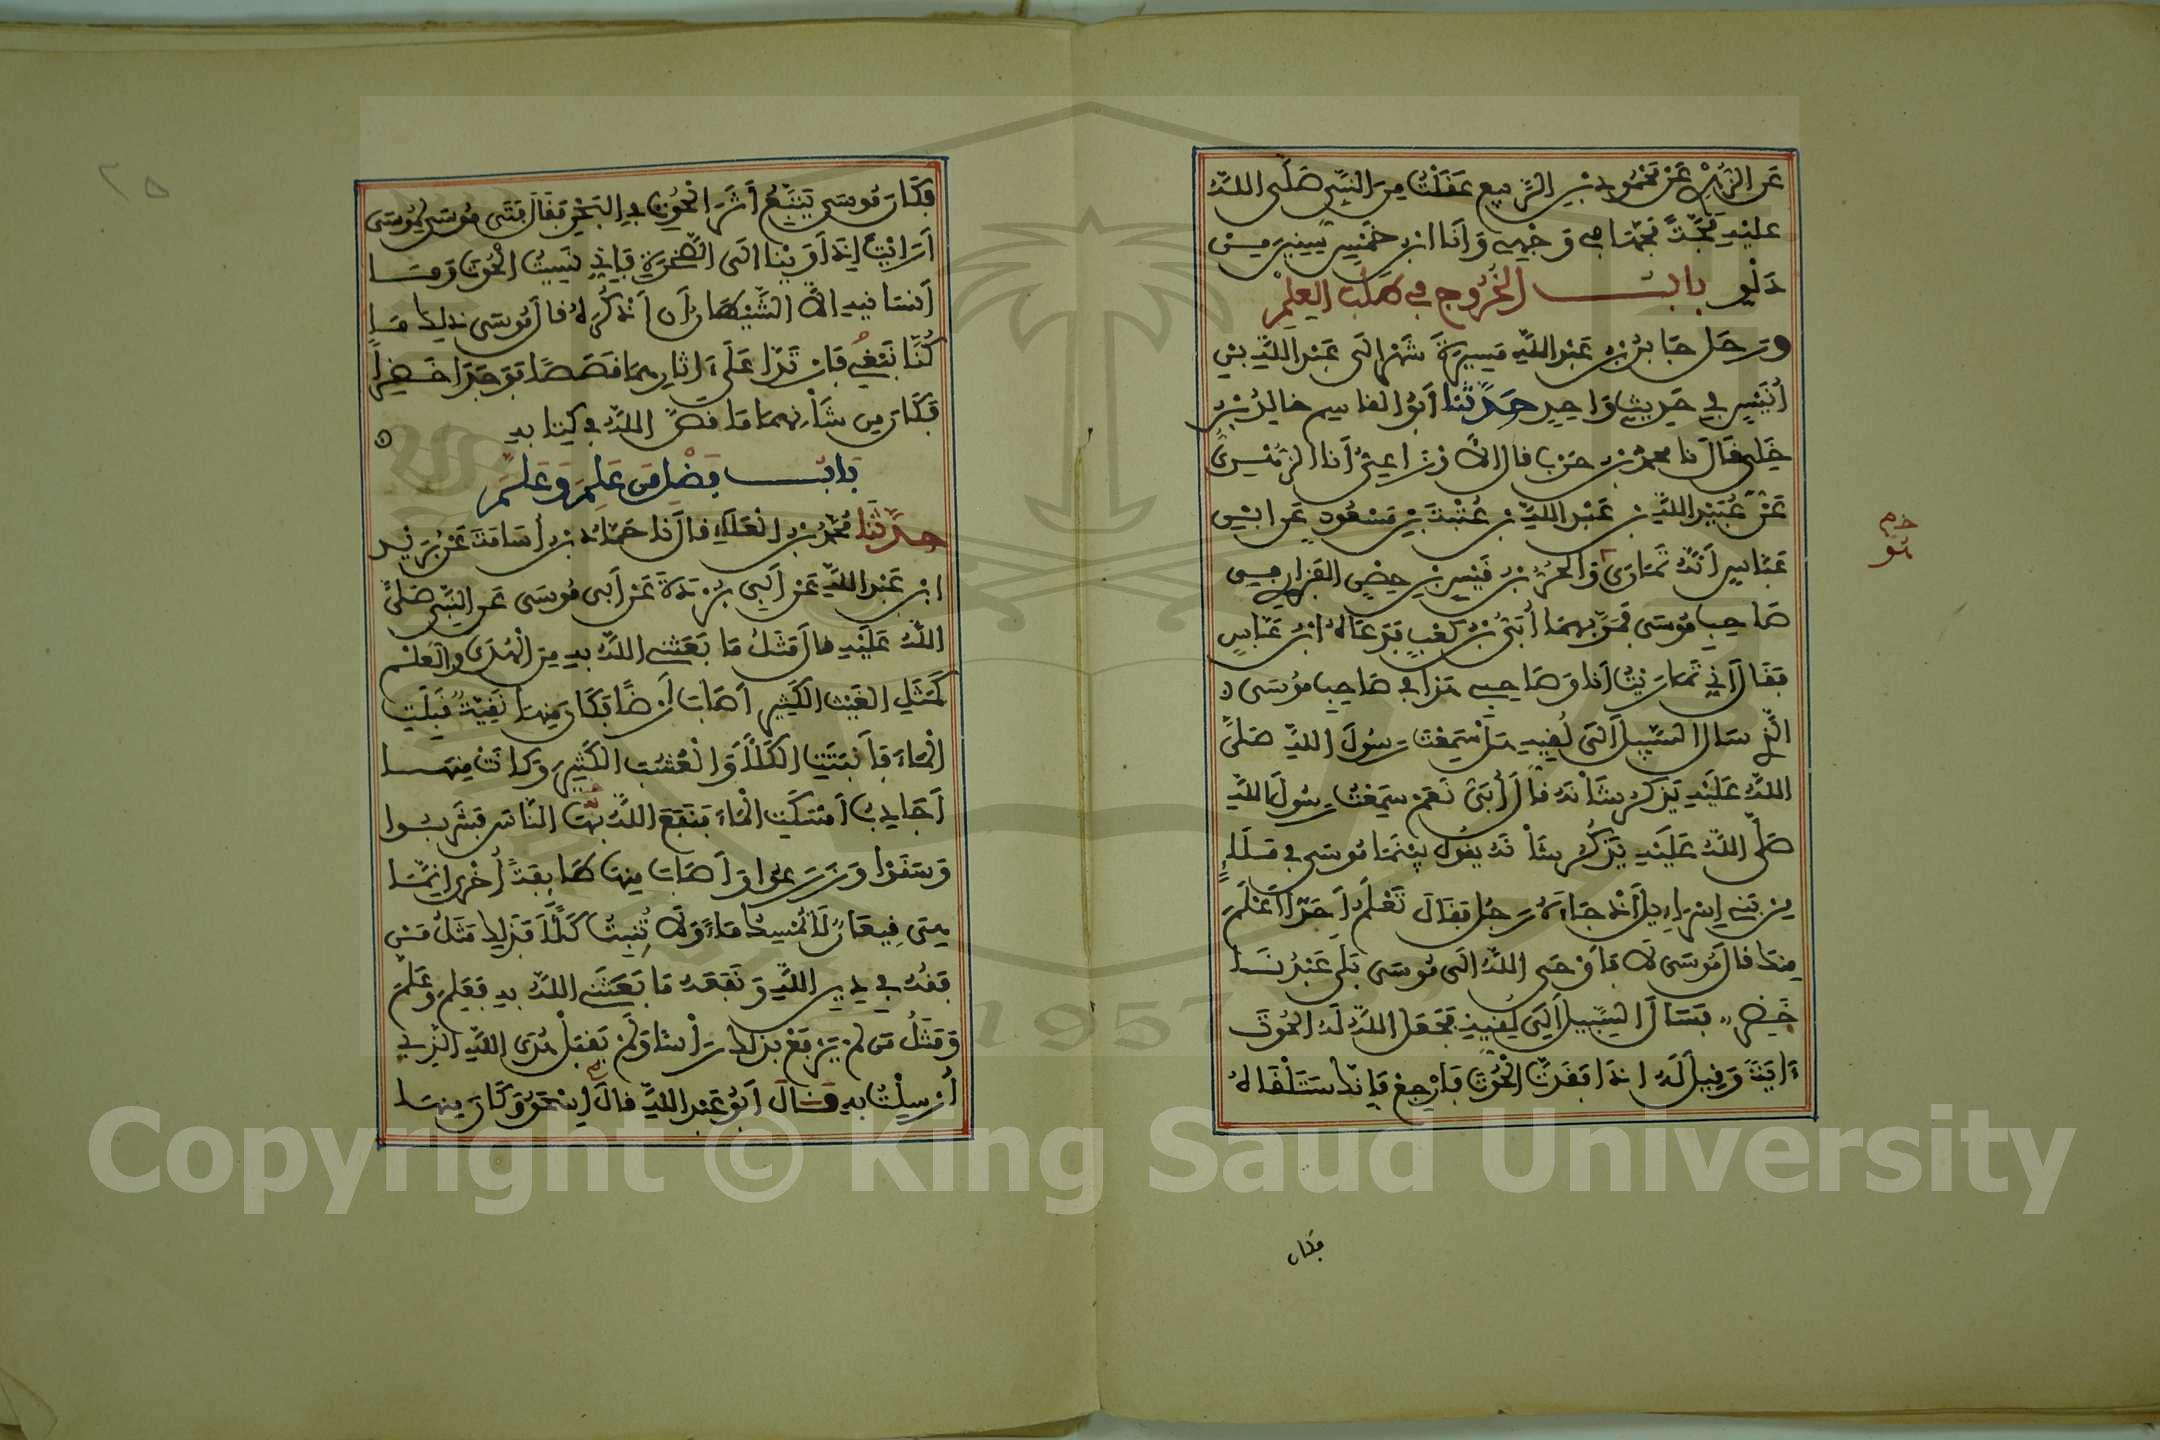 عَنِ الزُّهْرِي عَنْ مَحْمُودِ بْنِ الرَّبِيعِ عَقَلْتُ مِنَ النَّبِيِّ صَلَّى اللَّهُ
عَلَيْهِ مَجَّةً مَجَّهَا فِي وَجْهِي وَأَنَا ابْنُ خَمْسِ سِنِينَ مِنْ
دَلْوٍ بَابُ الْخُرُوجِ فِي طَلَبِ الْعِلْمِ
وَرَحَلَ جَابِرُ بْنُ عَبْدِ اللَّهِ مَسِيرَةَ شَهْرٍ إِلَى عَبْدِ اللَّهِ بْنِ
أُنَيْسٍ فِي حَدِيثٍ وَاحِدٍ حَدَّثَنَا أَبُو الْقَاسِمِ خَالِدُ بْنُ
خَلِيٍّ قَالَ نَا مُحَمَّدُ بْنُ حَرْبٍ قَالَ الْأَوْزَاعِيُّ أَنَا الزُّهْرِيُّ
عَنْ عُبَيْدِ اللَّهِ بْنِ عَبْدِ اللَّهِ بْنِ عُتْبَةَ بْنِ مَسْعُودٍ عَنِ ابْنِ
عَبَّاسٍ أَنَّهُ تَمَارَى وَالْحُرُّ بْنُ قَيْسِ بْنِ حِصْنٍ الْفَزَارِيُّ فِي
صَاحِبِ مُوسَى فَمَرَّ بِهِمَا أُبَيُّ بْنُ كَعْبٍ فَدَعَاهُ ابْنُ عَبَّاسٍ
فَقَالَ إِنِّي تَمَارَيْتُ أَنَا وَصَاحِبِي هَذَا فِي صَاحِبِ مُوسَى
الَّذِي سَأَلَ السَّبِيلَ إِلَى لُقِيِّهِ هَلْ سَمِعْتَ رَسُولَ اللَّهِ صَلَّى
اللَّهُ عَلَيْهِ يَذْكُرُ شَأْنَهُ قَالَ أُبَيٌّ نَعَمْ سَمِعْتُ رَسُولَ اللَّهِ
صَلَّى اللَّهُ عَلَيْهِ يَذْكُرُ شَأْنَهُ يَقُولُ بَيْنَمَا مُوسَى فِي مَلَإٍ
مِنْ بَنِي إِسْرَاءِيلَ إِذْ جَاءَهُ رَجُلٌ فَقَالَ تَعْلَمُ أَحَدًا أَعْلَمَ
مِنْكَ قَالَ مُوسَى لَا فَأَوْحَى اللَّهُ إِلَى مُوسَى بَلَى عَبْدُنَا
خَضِرٌ فَسَأَلَ السَّبِيلَ إِلَى لُقِيِّهِ فَجَعَلَ اللَّهُ لَهُ الْحُوتَ
ءَايَةً وَقِيلَ لَهُ إِذَا فَقَدْتَ الْحُوتَ فَارْجِعْ فَإِنَّكَ سَتَلْقَاهُ
فكان
فَكَانَ مُوسَى يَتْبَعُ أَثَرَ الْحُوتِ فِي الْبَحْرِ فَقَالَ فَتَى مُوسَى لِمُوسَى
أَرَأَيْتَ إِذْ أَوَيْنَا إِلَى الصَّخْرَةِ فَإِنِّي نَسِيتُ الْحُوتَ وَمَا
أَنْسَانِيهِ إِلَّا الشَّيْطَانُ أَنْ أَذْكُرَهُ قَالَ مُوسَى ذَلِكَ مَا
كُنَّا نَبْغِي فَارْتَدَّا عَلَى ءَاثَارِهِمَا قَصَصًا فَوَجَدَا خَضِرًا
فَكَانَ مِنْ شَأْنِهِمَا مَا قَصَّ اللَّهُ فِي كِتَابِهِ
بَابُ فَضْلِ مَنْ عَلِمَ وَعَلَّمَ
حَدَّثَنَا مُحَمَّدُ بْنُ الْعَلَاءِ قَالَ نَا حَمَّادُ بْنُ أُسَامَةَ عَنْ بُرَيْدِ
ابْنِ عَبْدِ اللَّهِ عَنْ أَبِي بُرْدَةَ عَنْ أَبِي مُوسَى عَنِ النَّبِيِّ صَلَّى
اللَّهُ عَلَيْهِ قَالَ مَثَلُ مَا بَعَثَنِي اللَّهُ بِهِ مِنَ الْهُدَى وَالْعِلْمِ
كَمَثَلِ الْغَيْثِ الْكَثِيرِ أَصَابَ أَرْضًا فَكَانَ مِنْهَا نَقِيَّةٌ قَبِلَتِ
الْمَاءَ فَأَنْبَتَتِ الْكَلَأَ وَالْعُشْبَ الْكَثِيرَ وَكَانَتْ مِنْهَا
أَجَادِبُ أَمْسَكَتِ الْمَاءَ فَنَفَعَ اللَّهُ بِهَا النَّاسَ فَشَرِبُوا
وَسَقَوْا وَزَرَعُوا وَأَصَابَ مِنْهَا طَائِفَةً أُخْرَى إِنَّمَا
هِيَ قِيعَانٌ لَا تُمْسِكُ مَاءً وَلَا تُنْبِتُ كَلَأً فَذَلِكَ مَثَلُ مَنْ
فَقُهَ فِي دِينِ اللَّهِ وَنَفَعَهُ مَا بَعَثَنِي اللَّهُ بِهِ فَعَلِمَ وَعَلَّمَ
وَمَثَلُ مَنْ لَمْ يَرْفَعْ بِذَلِكَ رَأْسًا وَلَمْ يَقْبَلْ هُدَى اللَّهِ الَّذِي
أُرْسِلْتُ بِهِ قَالَ أَبُو عَبْدِ اللَّهِ قَالَ إِسْحَقُ وَكَانَ مِنْهَا
٢٥
Copyright © King Saud University
1957